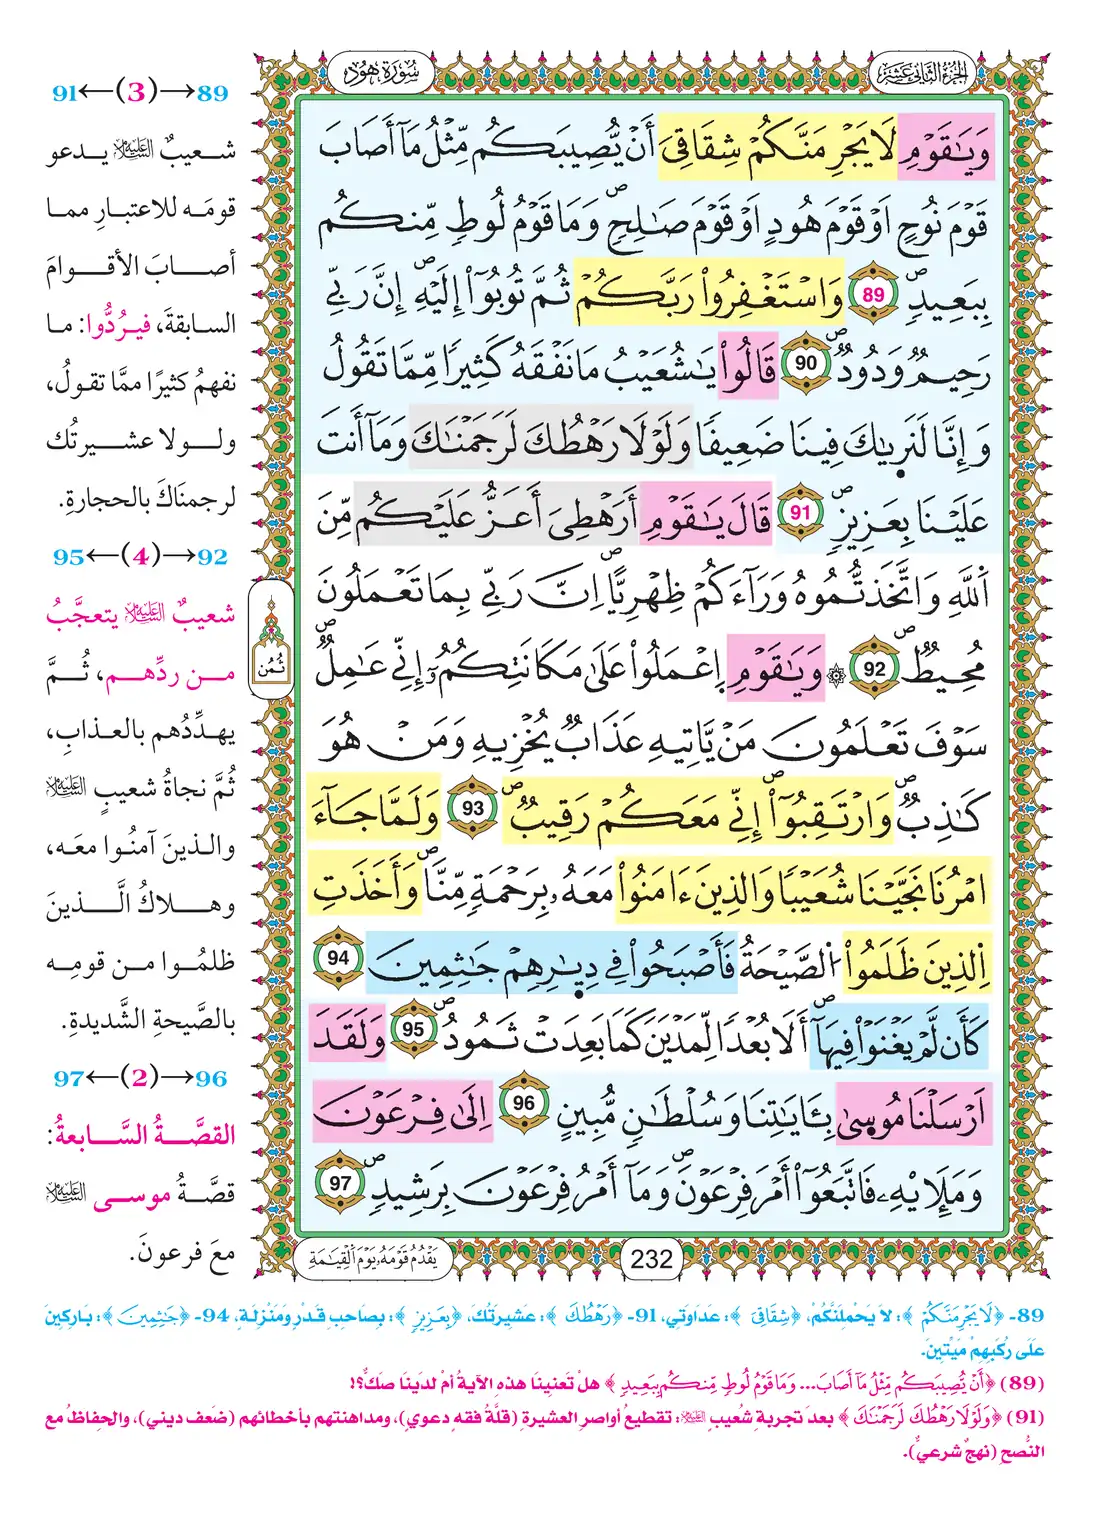 الجزء الثاني عشر
سورة هود
وَيَٰقَوْمِ لَا يَجْرِمَنَّكُمْ شِقَاقِيَ أَنْ يُّصِيبَكُم مِّثْلُ مَآ أَصَابَ
قَوْمَ نُوحٍ اَوْ قَوْمَ هُودٍ اَوْ قَوْمَ صَٰلِحٍ وَمَا قَوْمُ لُوطٍ مِّنكُم
بِبَعِيدٍ 89 وَاسْتَغْفِرُوا۟ رَبَّكُمْ ثُمَّ تُوبُوٓا۟ إِلَيْهِ إِنَّ رَبِّي
رَحِيمٌ وَدُودٌ 90 قَالُوا۟ يَٰشُعَيْبُ مَا نَفْقَهُ كَثِيرًا مِّمَّا تَقُولُ
وَإِنَّا لَنَرٜىٰكَ فِينَا ضَعِيفًا وَلَوْلَا رَهْطُكَ لَرَجَمْنَٰكَ وَمَآ أَنتَ
عَلَيْنَا بِعَزِيزٍ 91 قَالَ يَٰقَوْمِ أَرَهْطِيَ أَعَزُّ عَلَيْكُم مِّنَ
اَللَّهِ وَاتَّخَذتُّمُوهُ وَرَآءَكُمْ ظِهْرِيًّا اِنَّ رَبِّي بِمَا تَعْمَلُونَ
مُحِيطٌ 92 ۞ وَيَٰقَوْمِ اِعْمَلُوا۟ عَلَىٰ مَكَانَتِكُمُۥٓ إِنِّي عَٰمِلٌ
سَوْفَ تَعْلَمُونَ مَنْ يَّاتِيهِ عَذَابٌ يُخْزِيهِ وَمَنْ هُوَ
كَٰذِبٌ وَارْتَقِبُوٓا۟ إِنِّي مَعَكُمْ رَقِيبٌ 93 وَلَمَّا جَآءَ
امْرُنَا نَجَّيْنَا شُعَيْبًا وَالذِينَ ءَامَنُوا۟ مَعَهُۥ بِرَحْمَةٍ مِّنَّا وَأَخَذَتِ
اِلذِينَ ظَلَمُوا۟ اُلصَّيْحَةُ فَأَصْبَحُوا۟ فِي دِيٰٜرِهِمْ جَٰثِمِينَ 94
كَأَن لَّمْ يَغْنَوْا۟ فِيهَآ أَلَا بُعْدًا لِّمَدْيَنَ كَمَا بَعِدَتْ ثَمُودُ 95 وَلَقَدَ
اَرْسَلْنَا مُوسٜىٰ بِـَٔايَٰتِنَا وَسُلْطَٰنٍ مُّبِينٍ 96 اِلَىٰ فِرْعَوْنَ
وَمَلَإِيْهِۦ فَاتَّبَعُوٓا۟ أَمْرَ فِرْعَوْنَ وَمَآ أَمْرُ فِرْعَوْنَ بِرَشِيدٍ 97
يَقْدُمُ قَوْمَهُۥ يَوْمَ اَلْقِيَٰمَةِ
232
ثُمُن
91←(3)→89
شعيبٌ عليه السلام يدعو
قومَه للاعتبارِ مما
أصابَ الأقوامَ
السابقةَ، فيردُّوا: ما
نفهمُ كثيرًا ممَّا تقولُ،
ولولا عشيرتُك
لرجمنَاكَ بالحجارةِ.
95←(4)→92
شعيبٌ عليه السلام يتعجَّبُ
من ردِّهم، ثُمَّ
يهدِّدُهم بالعذابِ،
ثُمَّ نجاةُ شعيبٍ عليه السلام
والذينَ آمنُوا معَه،
وهلاكُ الَّذينَ
ظلمُوا من قومِه
بالصَّيحةِ الشَّديدةِ.
97←(2)→96
القصَّةُ السَّابعةُ:
قصَّةُ موسى عليه السلام
معَ فرعونَ.
89- ﴿لَا يَجْرِمَنَّكُمْ﴾: لَا يَحْمِلَنَّكُمْ، ﴿شِقَاقِيَ﴾: عَدَاوَتِي، 91- ﴿رَهْطُكَ﴾: عَشِيرَتُكَ، ﴿بِعَزِيزٍ﴾: بِصَاحِبِ قَدْرٍ وَمَنْزِلَةٍ، 94- ﴿جَٰثِمِينَ﴾: بَارِكِينَ
عَلَى رُكَبِهِمْ مَيِّتِينَ.
(89) ﴿أَنْ يُّصِيبَكُم مِّثْلُ مَآ أَصَابَ... وَمَا قَوْمُ لُوطٍ مِّنكُم بِبَعِيدٍ﴾ هلْ تَعنينَا هذهِ الآيةُ أمْ لدَينَا صَكٌّ؟!
(91) ﴿وَلَوْلَا رَهْطُكَ لَرَجَمْنَٰكَ﴾ بعدَ تجربةِ شُعيبٍ عليه السلام: تقطيعُ أواصرِ العشيرةِ (قلَّةُ فقهٍ دعوي)، ومداهنتهم بأخطائهم (ضَعف ديني)، والحفاظُ مع
النُّصحِ (نهجٌ شرعيٌّ).